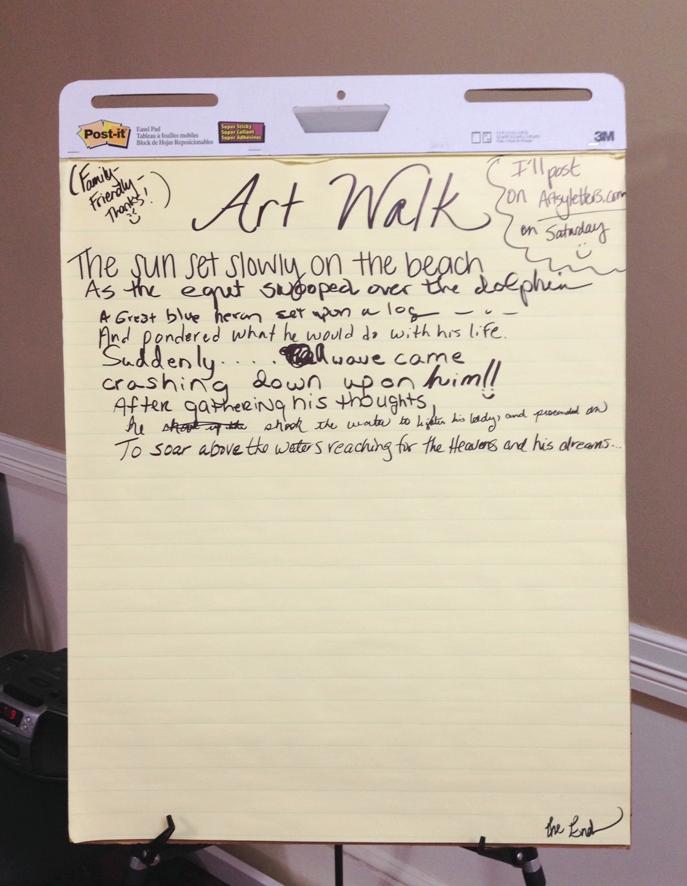 Post-it
Easel Pad
Tableau à feuilles mobiles
Block de Hojas Reposicionables
Super Sticky
Super Collant
Super Adhesivas
3M
(Family-
Friendly-
Thanks!)
Art Walk
I'll post
on Artsyletters.com
on Saturday
The sun set slowly on the beach
As the egret swooped over the dolphin
A Great blue heran set upon a log
And pondered what he would do with his life.
Suddenly..... wave came
crashing down upon him!!
After gathering his thoughts,
he shook the water to lighten his body, and proceeded on
To soar above the waters reaching for the Heavens and his dreams...
the End